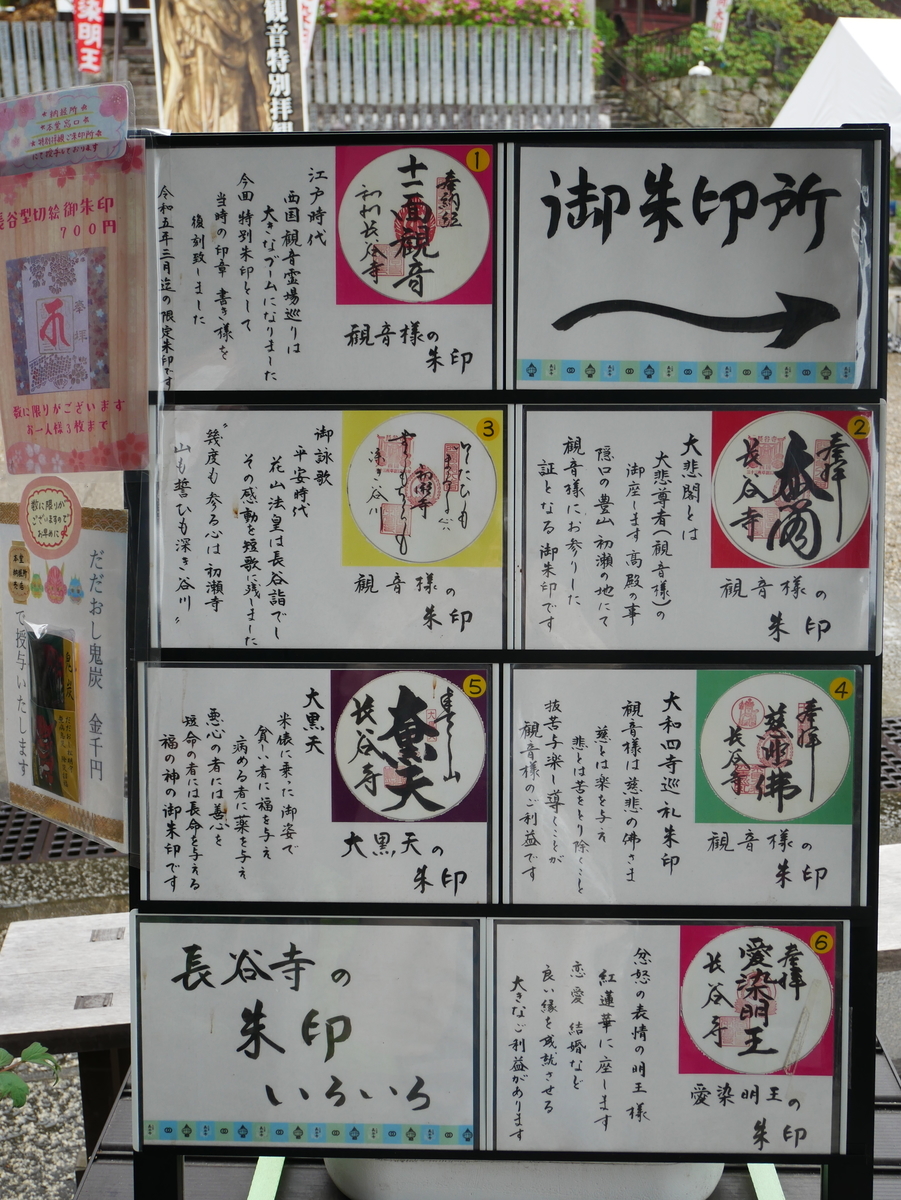 御朱印所
①
奉納経
十一面觀音
長谷寺
観音様の
朱印
江戸時代
西国観音霊場巡りは
大きなブームになりました
今回特別朱印として
当時の印章 書き様を
復刻致しました
令和五年三月迄の限定朱印です
②
奉拝
大悲閣
長谷寺
観音様の
朱印
大悲閣とは
大悲尊者(観音様)の
御座します高殿の事
隠口の豊山初瀬の地にて
観音様にお参りした
証となる御朱印です
③
初瀬寺
観音様の
朱印
御詠歌
平安時代
花山法皇は長谷詣でし
その感動を短歌に残しました
〝幾度も参る心は初瀬寺
山も誓ひも深き谷川〟
④
奉拝
慈悲佛
長谷寺
観音様の
朱印
大和四寺巡礼朱印
観音様は慈悲の佛さま
慈とは楽を与え
悲とは苦をとり除くこと
抜苦与楽し導くことが
観音様のご利益です
⑤
大黒天
長谷寺
大黒天の
朱印
大黒天
米俵に乗った御姿で
貧しい者に福を与え
病める者に薬を与え
悪心の者には善心を
短命の者には長命を与える
福の神の御朱印です
⑥
奉拝
愛染明王
長谷寺
愛染明王の
朱印
忿怒の表情の明王様
紅蓮華に座します
恋愛 結婚など
良い縁を成就させる
大きなご利益があります
長谷寺の
朱印
いろいろ
納経所
本堂窓口
特別拝観ご朱印所
にて授与しております
長谷型切絵御朱印
700円
奉拝
数に限りがございます
お一人様3枚まで
数に限りが
ございますので
お早めに
本堂
納経所
だだおし鬼炭 金千円
で授与いたします
鬼炭
染明王
観音特別拝観